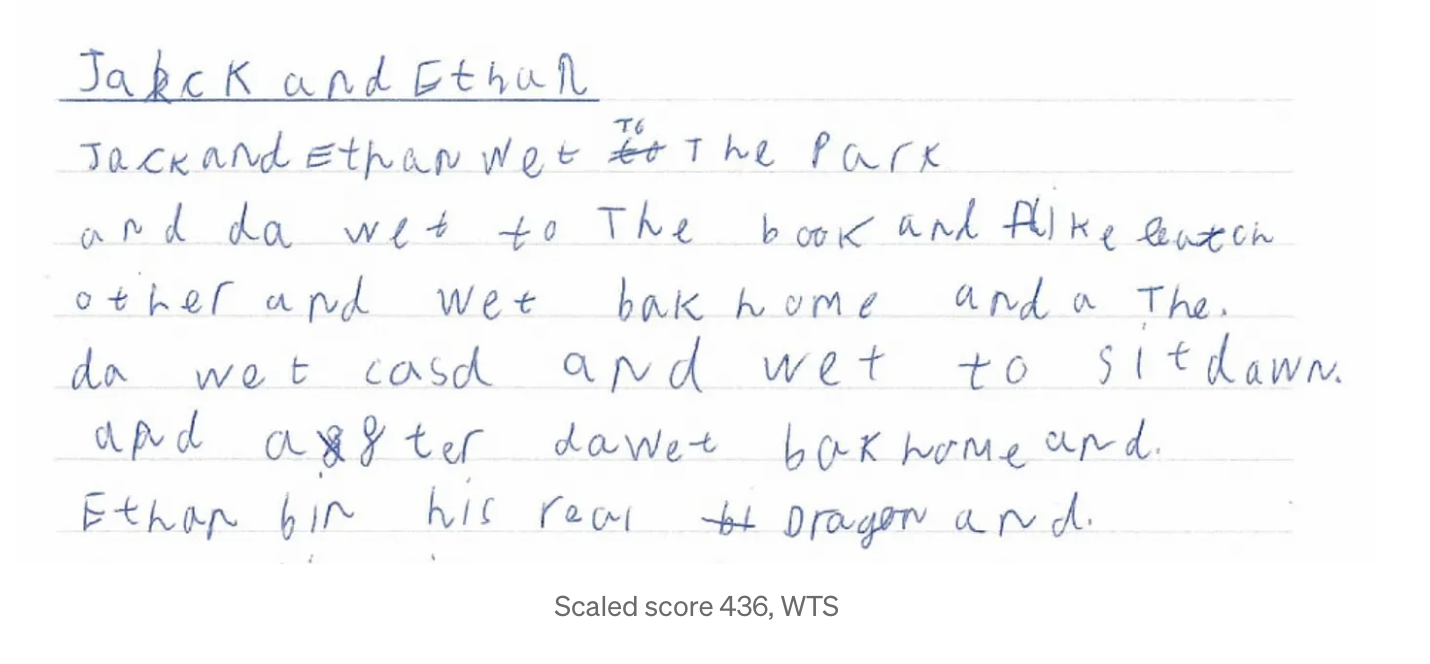 Jack and Ethan
Jack and Ethan wet To The Park
and da wet to The book and like eatch
other and wet bak home and a The.
da wet casd and wet to sitdawn.
and agter da wet bak home and.
Ethan bin his real Dragon and.
Scaled score 436, WTS